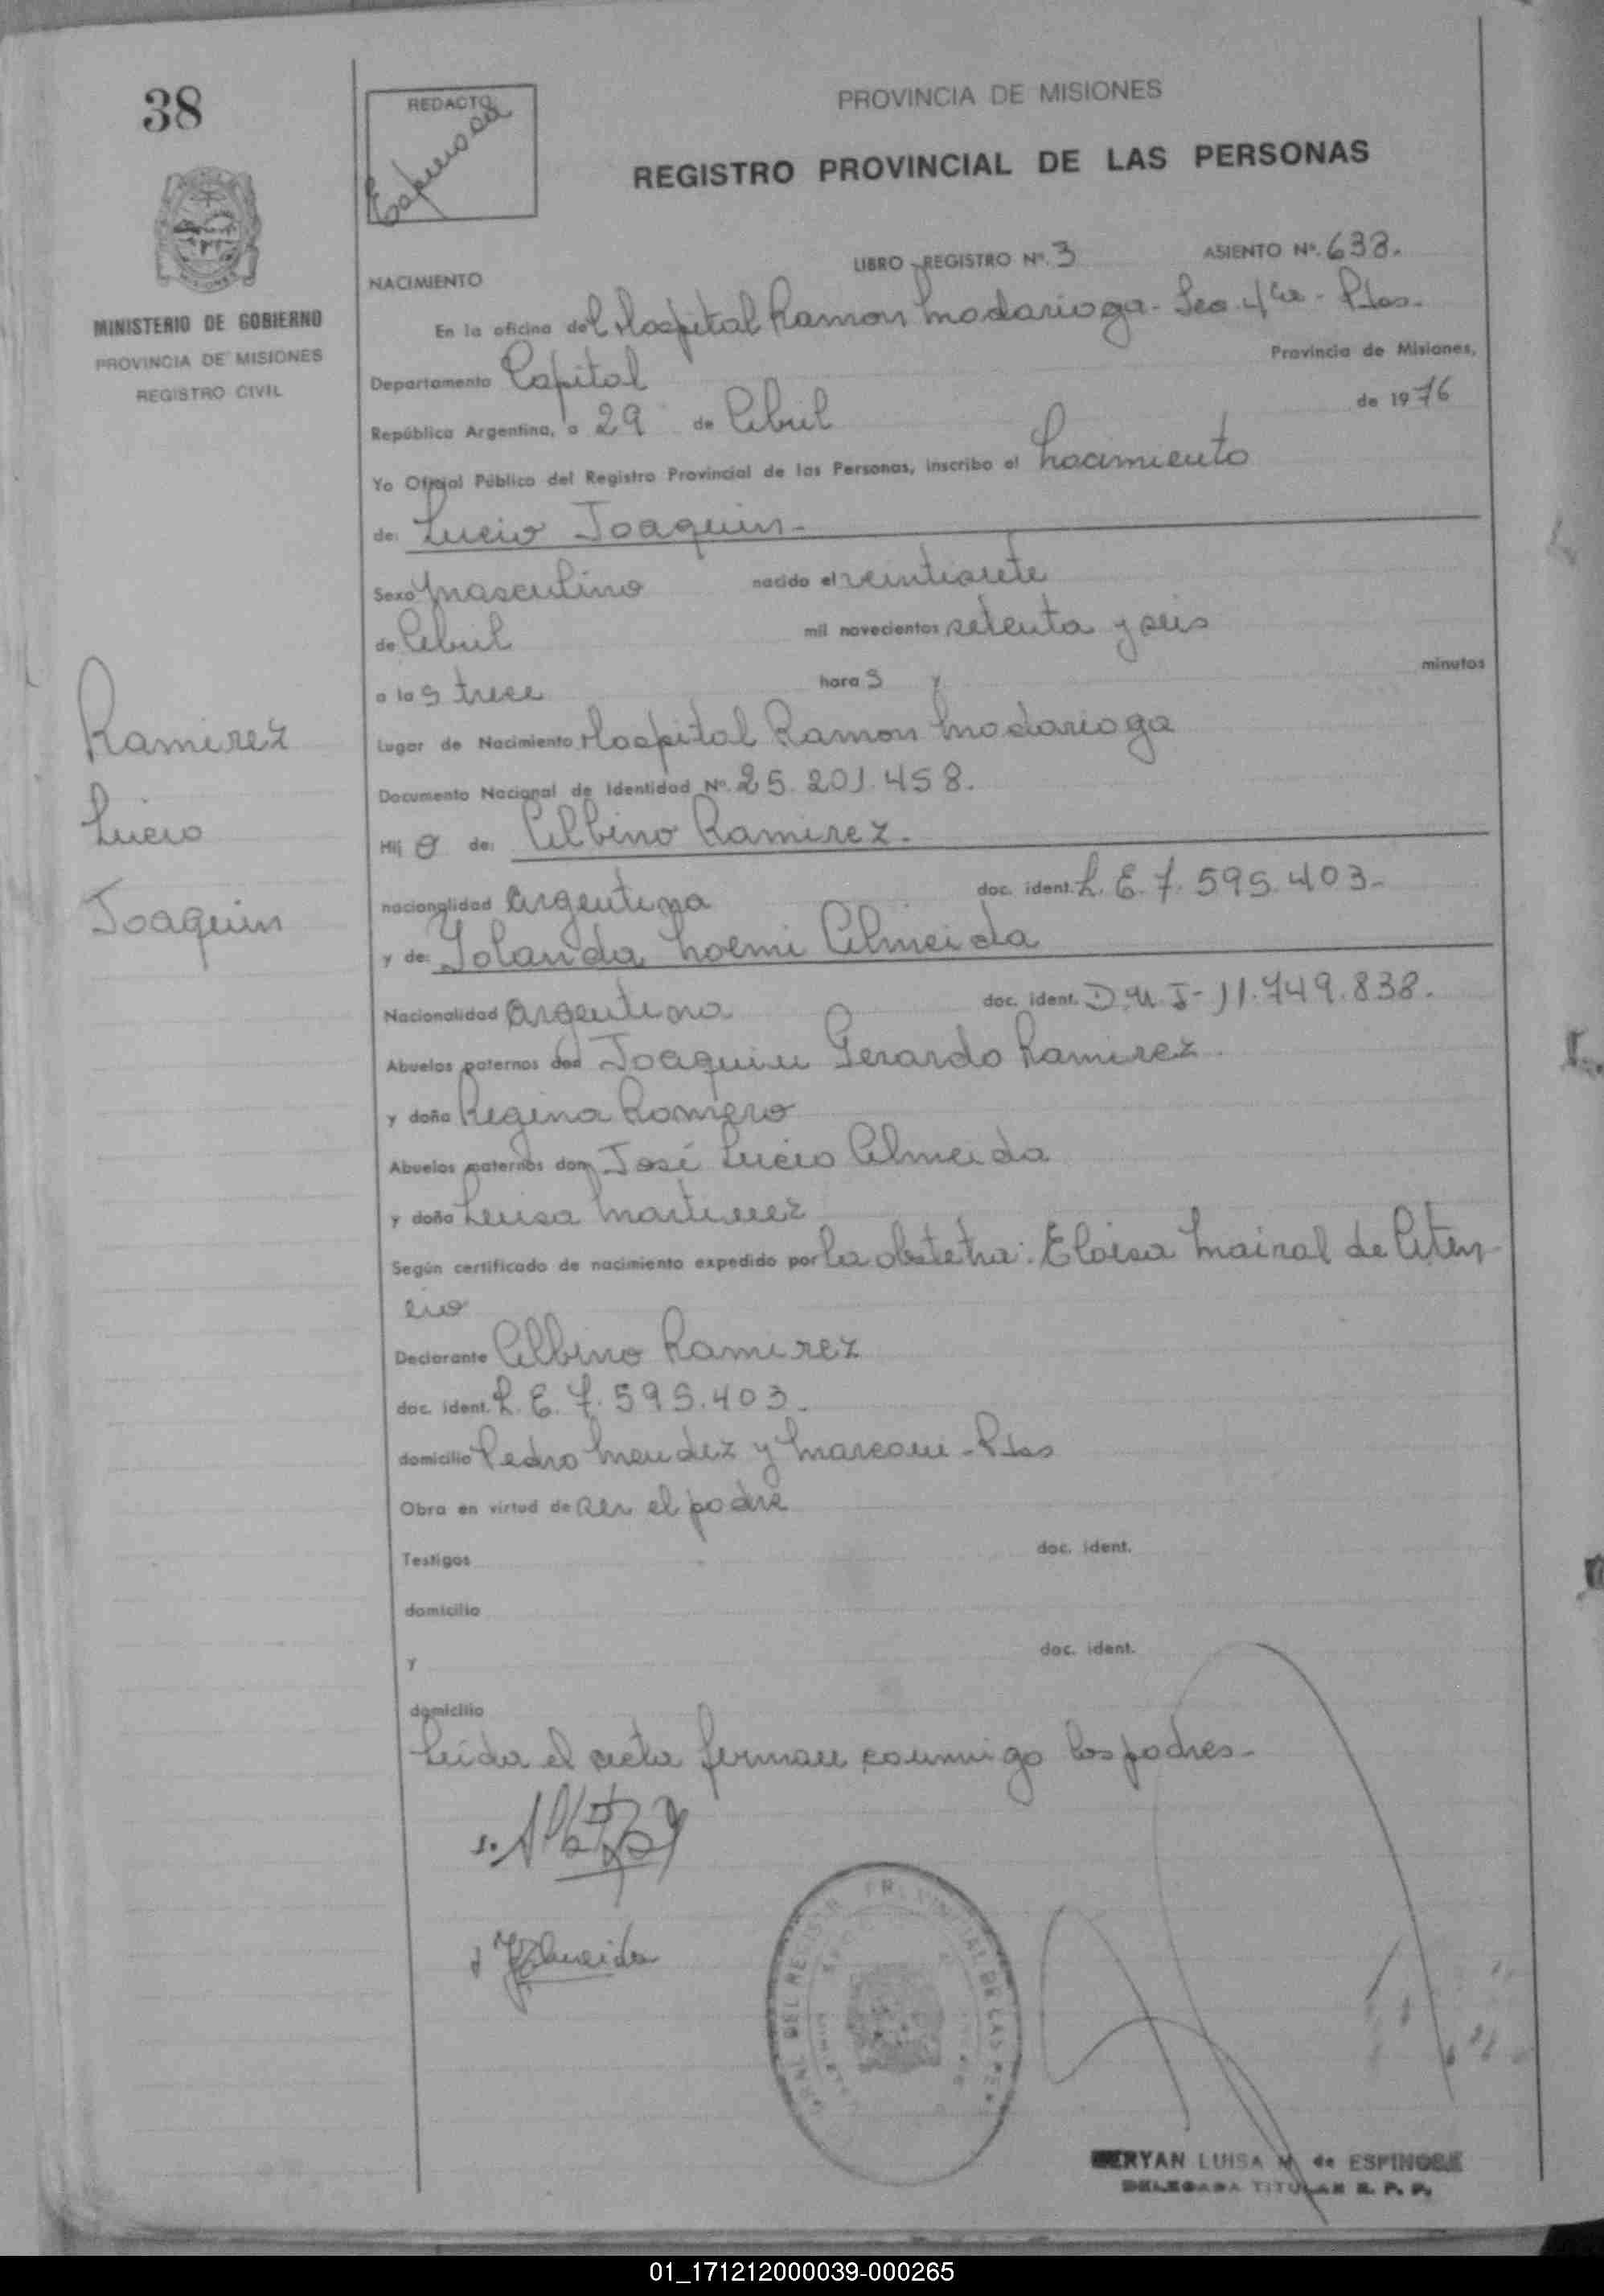 38
REDACTO
Espinosa
PROVINCIA DE MISIONES
REGISTRO PROVINCIAL DE LAS PERSONAS
MINISTERIO DE GOBIERNO
PROVINCIA DE MISIONES
REGISTRO CIVIL
LIBRO REGISTRO Nº. 3 ASIENTO Nº. 638.
NACIMIENTO
En la oficina del Hospital Ramon Madariaga - Sec. 4ta - Pdas.
Departamento Capital Provincia de Misiones,
República Argentina, a 29 de Abril de 1976
Yo Oficial Público del Registro Provincial de las Personas, inscribo el Nacimiento
de: Lucio Joaquin -
Sexo masculino nacido el veintisiete
de Abril mil novecientos setenta y seis
a las trece horas y minutos
Lugar de Nacimiento Hospital Ramon Madariaga
Documento Nacional de Identidad Nº. 25.201.458.
Hijo de: Albino Ramirez.
nacionalidad argentina doc. ident. L.E. 7.595.403-
y de: Yolanda Noemi Almeida
Nacionalidad argentina doc. ident. D.N.I- 11.749.838.
Abuelos paternos don Joaquin Gerardo Ramirez
y doña Regina Romero
Abuelos maternos don José Lucio Almeida
y doña Luisa Martinez
Según certificado de nacimiento expedido por la obstetra: Eloisa Mairal de Aten-
cio
Declarante Albino Ramirez
doc. ident. L.E. 7.595.403.
domicilio Pedro Mendez y Marconi - Pdas
Obra en virtud de ser el padre
Testigos doc. ident.
domicilio
y doc. ident.
domicilio
Leida el acta firman conmigo los padres-
Ramirez
Lucio
Joaquin
Almeida
LUISA M. de ESPINOSA
DELEGADA TITULAR R. P. P.
01_171212000039-000265